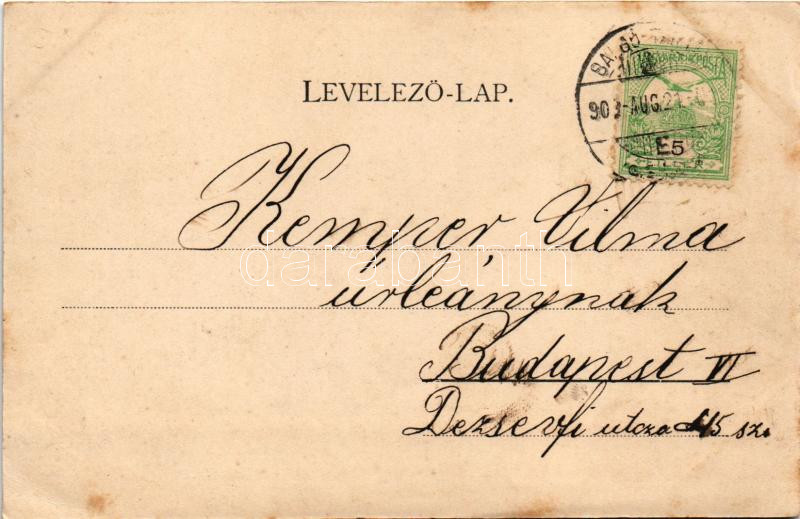 LEVELEZŐ-LAP.
903 AUG. 21
E5
Kemper Vilma
úrleánynak
Budapest VI
Dezsevfi utcza 45 sz.
darabanth